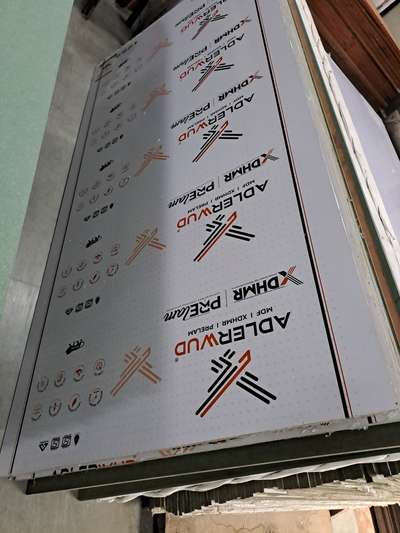 ADLERWUD
MDF | XDHMR | PRELAM
XDHMR | PRElam
ADLERWUD
MDF | XDHMR | PRELAM
XDHMR | PRElam
ADLERWUD
MDF | XDHMR | PRELAM
XDHMR | PRElam
ADLERWUD
MDF | XDHMR | PRELAM
XDHMR | PRElam
ADLERWUD